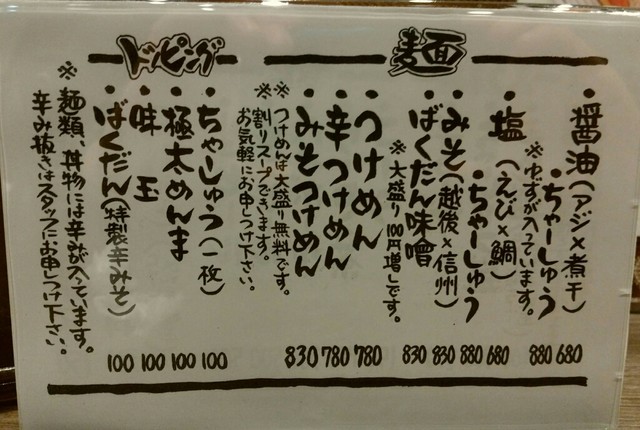 麺
・醤油(アジ×煮干)
・ちゃーしゅう
※ゆずが入っています。
・塩(えび×鯛)
・ちゃーしゅう
・みそ(越後×信州)
・ばくだん味噌
※大盛り100円増しです。
・つけめん
・辛つけめん
・みそつけめん
※つけめんは大盛り無料です。
※割りスープできます。
お気軽にお申しつけ下さい。
830 780 780 830 830 880 680 880 680
トッピング
・ちゃーしゅう(一枚)
・極太めんま
・味玉
・ばくだん(特製辛みそ)
100 100 100 100
※麺類、丼物には辛みが入っています。
辛み抜きはスタッフにお申しつけ下さい。